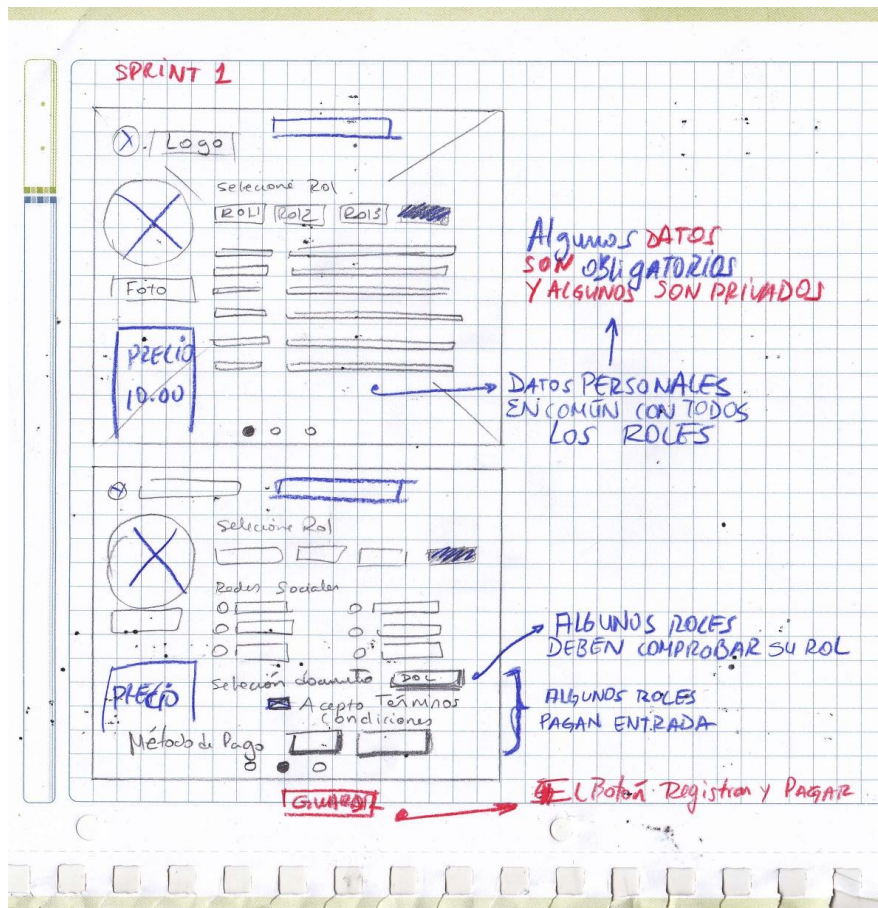 SPRINT 1
Logo
Selecione Rol
ROL1 Rol2 Rol3
Foto
PRECIO
10.00
Algunos DATOS
SON OBLIGATORIOS
Y ALGUNOS SON PRIVADOS
DATOS PERSONALES
EN COMÚN CON TODOS
LOS ROLES
Selecione Rol
Redes Sociales
PRECIO
Selección documento DOC
Acepto Términos
Condiciones
Método de Pago
ALGUNOS ROLES
DEBEN COMPROBAR SU ROL
ALGUNOS ROLES
PAGAN ENTRADA
EL Botón Registrar y PAGAR